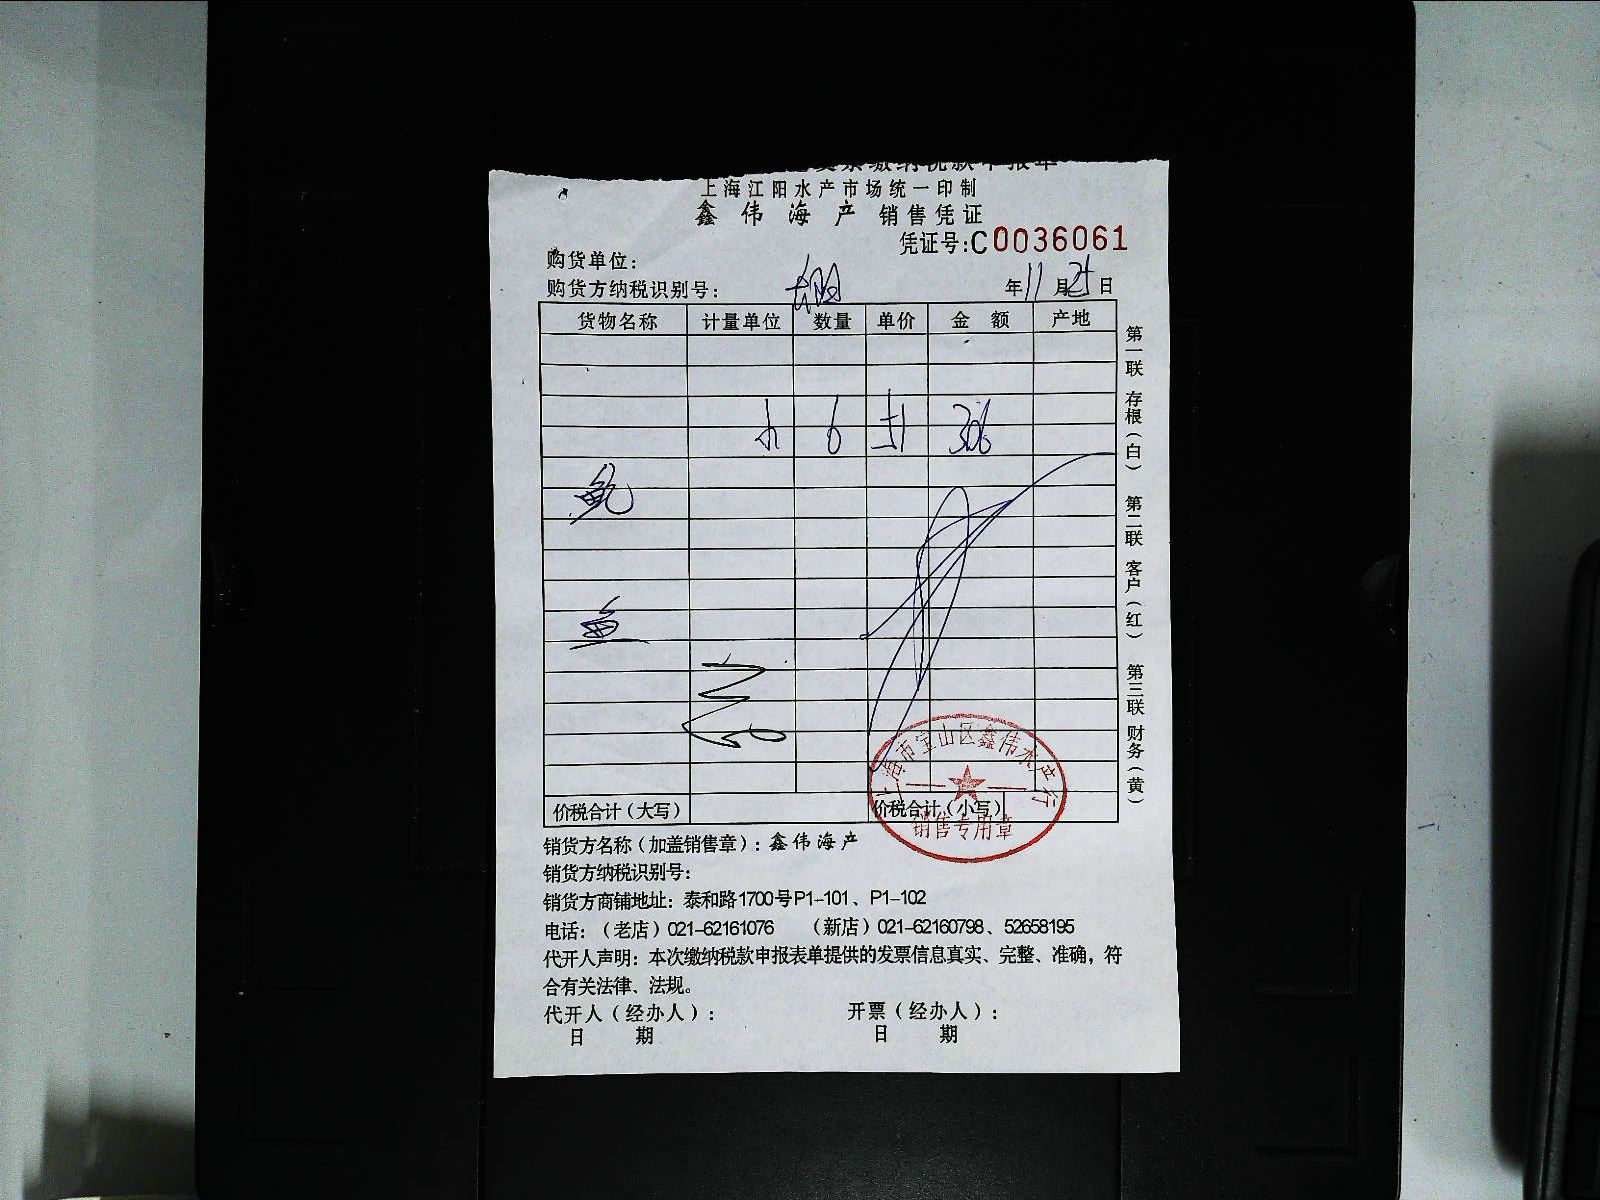 缴纳税款申报单
上海江阳水产市场统一印制
鑫伟海产 销售凭证
凭证号:C0036061
购货单位:
购货方纳税识别号: 年11月25日
货物名称 计量单位 数量 单价 金额 产地
6 51 306
鲍
鱼
价税合计(大写) 价税合计(小写)
上海市宝山区鑫伟水产行
销售专用章
第一联 存根(白) 第二联 客户(红) 第三联 财务(黄)
销货方名称(加盖销售章):鑫伟海产
销货方纳税识别号:
销货方商铺地址:泰和路1700号P1-101、P1-102
电话:(老店)021-62161076 (新店)021-62160798、52658195
代开人声明:本次缴纳税款申报表单提供的发票信息真实、完整、准确,符
合有关法律、法规。
代开人(经办人): 开票(经办人):
日 期 日 期